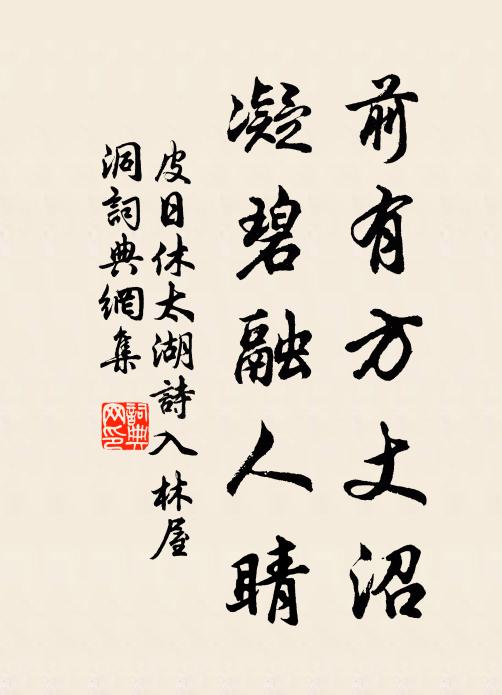 前有方丈沼
凝碧融人睛
皮日休太湖詩入林屋
洞詞典網集
詞典网印